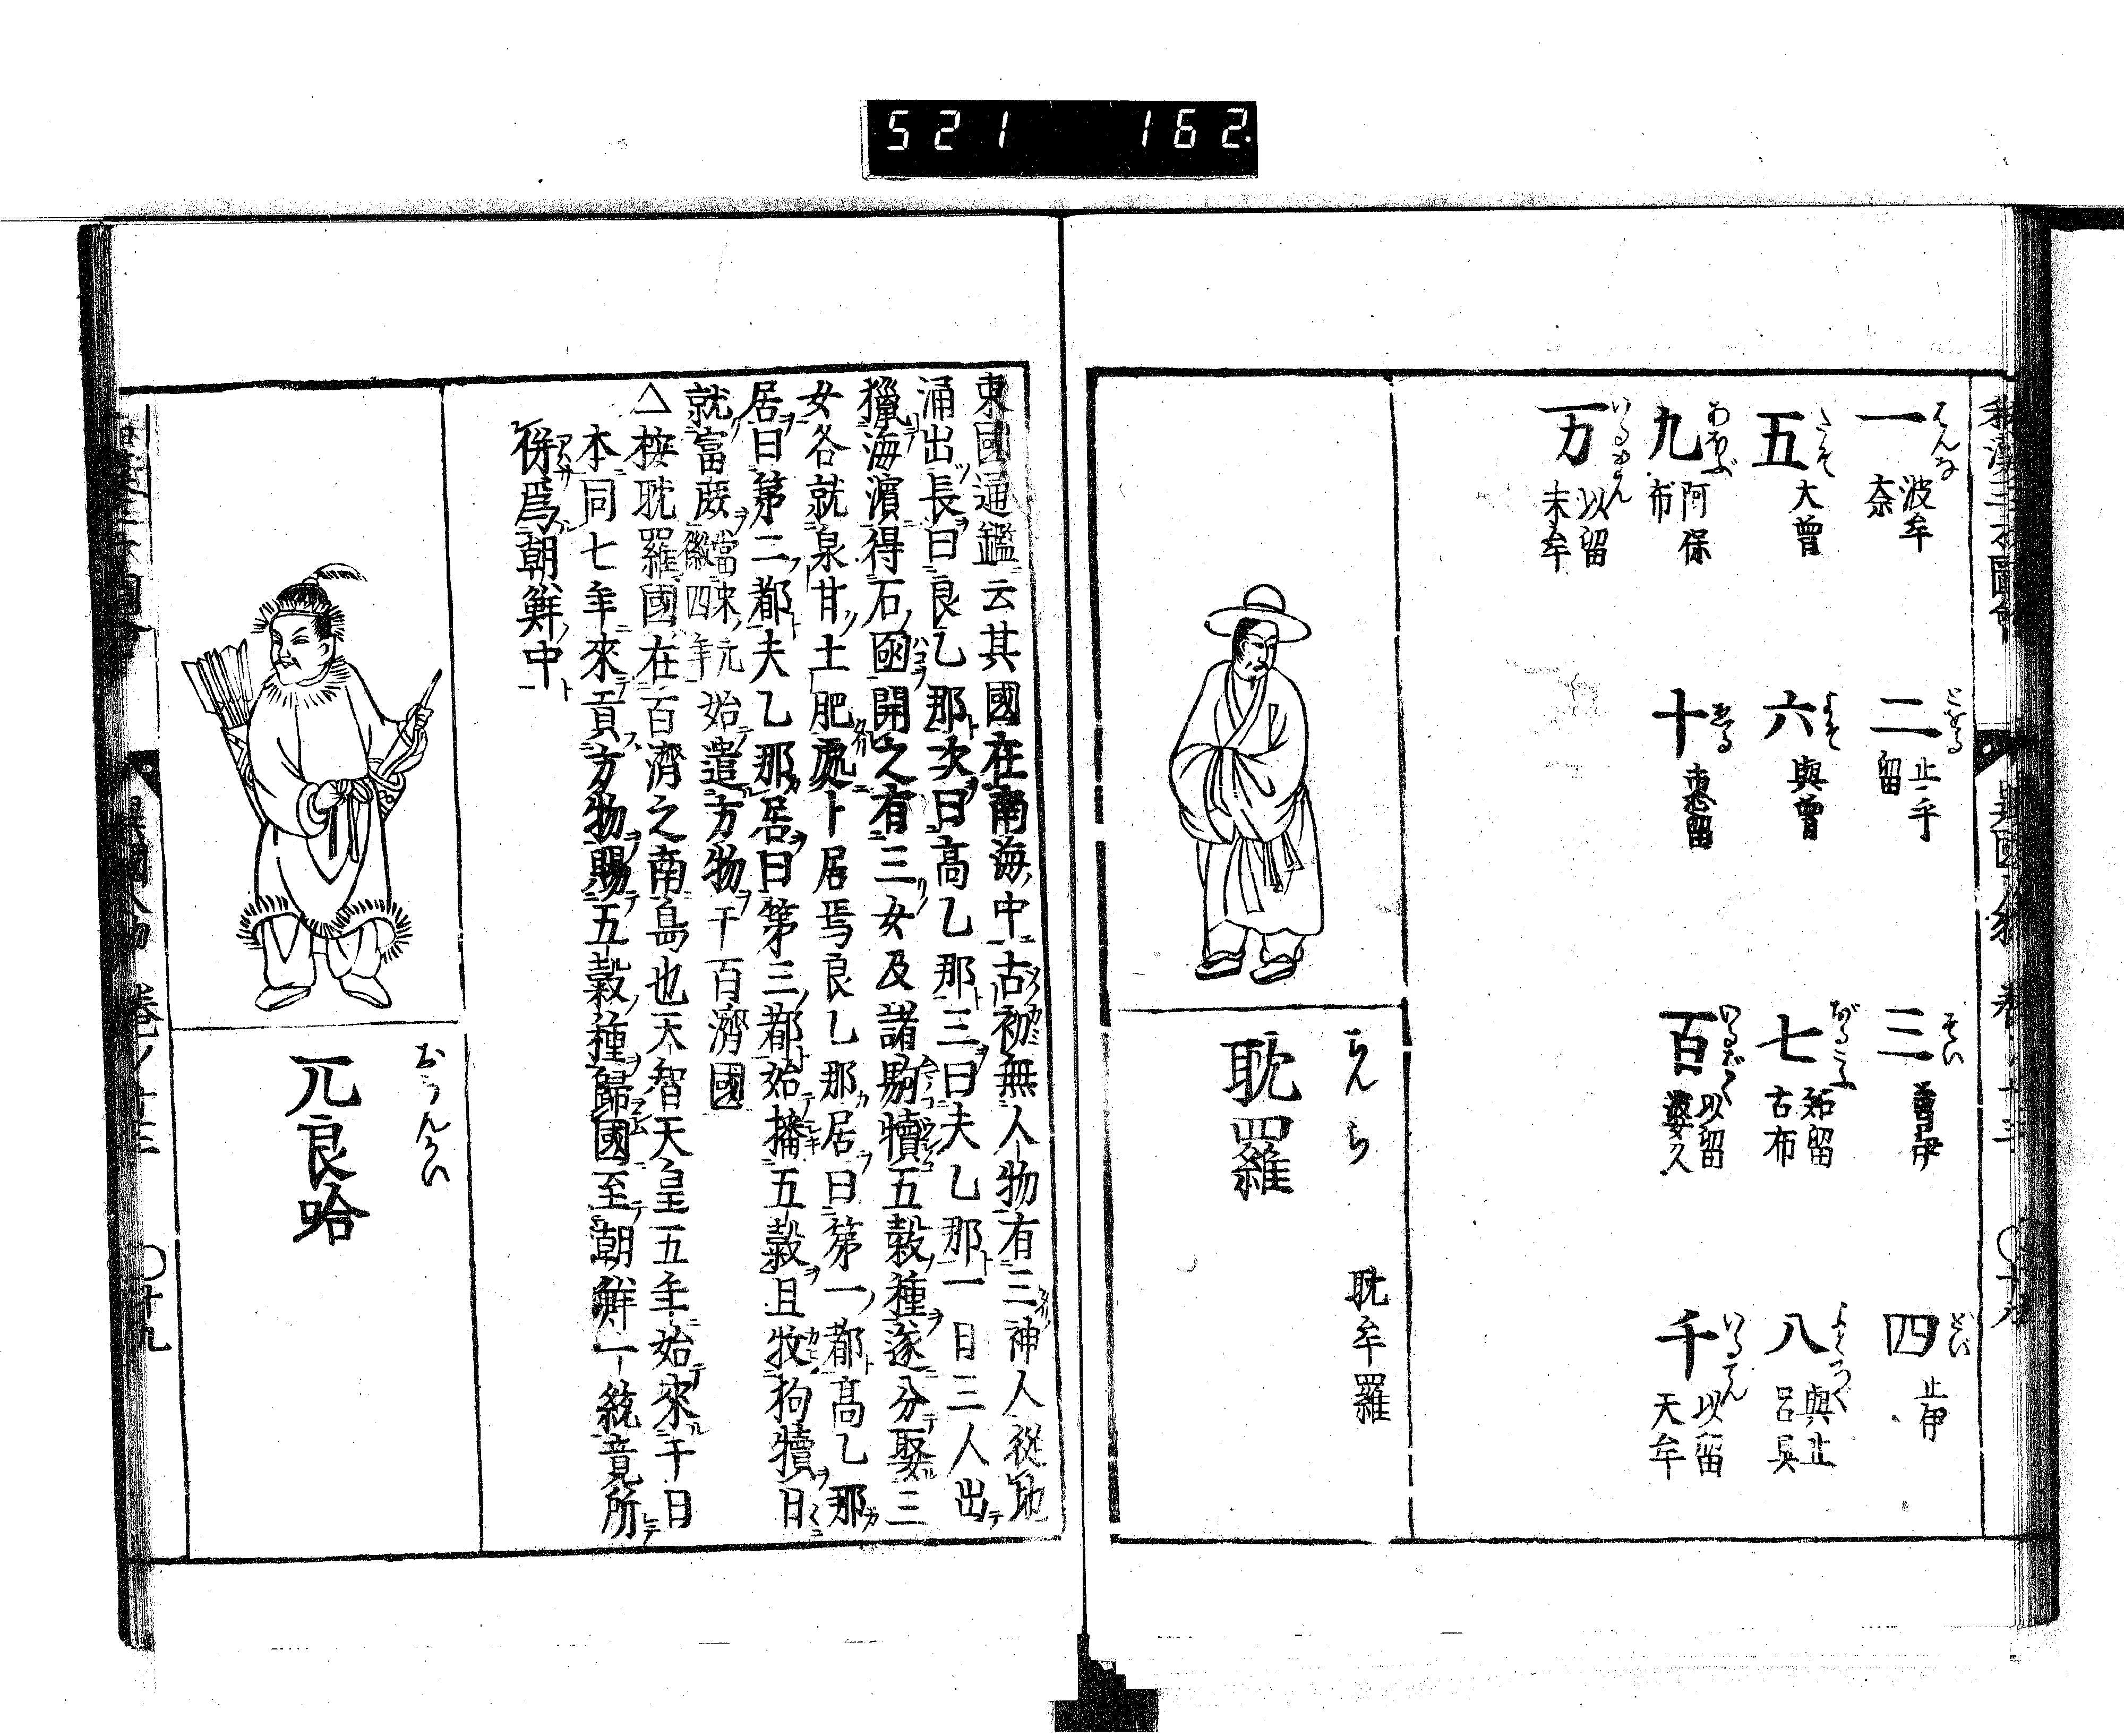 521 162
一 はんな 波牟奈
二 止乎留
三 そい 曽伊
四 とい 止伊
五 たそ 大曽
六 よそ 與曽
七 古布
八 與止呂具
九 阿保布
十 惠留
百 以留婆久
千 いるてん 以留天牟
万 いるまん 以留末牟
耽羅 たんら 耽牟羅
東國通鑑云其國在南海中古初無人物有三神人從地
涌出長曰良乙那次曰高乙那三曰夫乙那一日三人出
獵海濱得石函開之有三女及諸駒犢五穀種遂分娶三
女各就泉甘土肥處卜居焉良乙那居曰第一都高乙那
居曰第二都夫乙那居曰第三都始播五穀且牧狗犢日
就富庶當宋元徽四年始遣方物于百濟國
△按耽羅國在百濟之南島也天智天皇五年始來于日
本同七年來貢方物賜五穀種歸國至朝鮮一統竟所
併爲朝鮮中
兀良哈
異國人物 卷ノ十三 〇十九